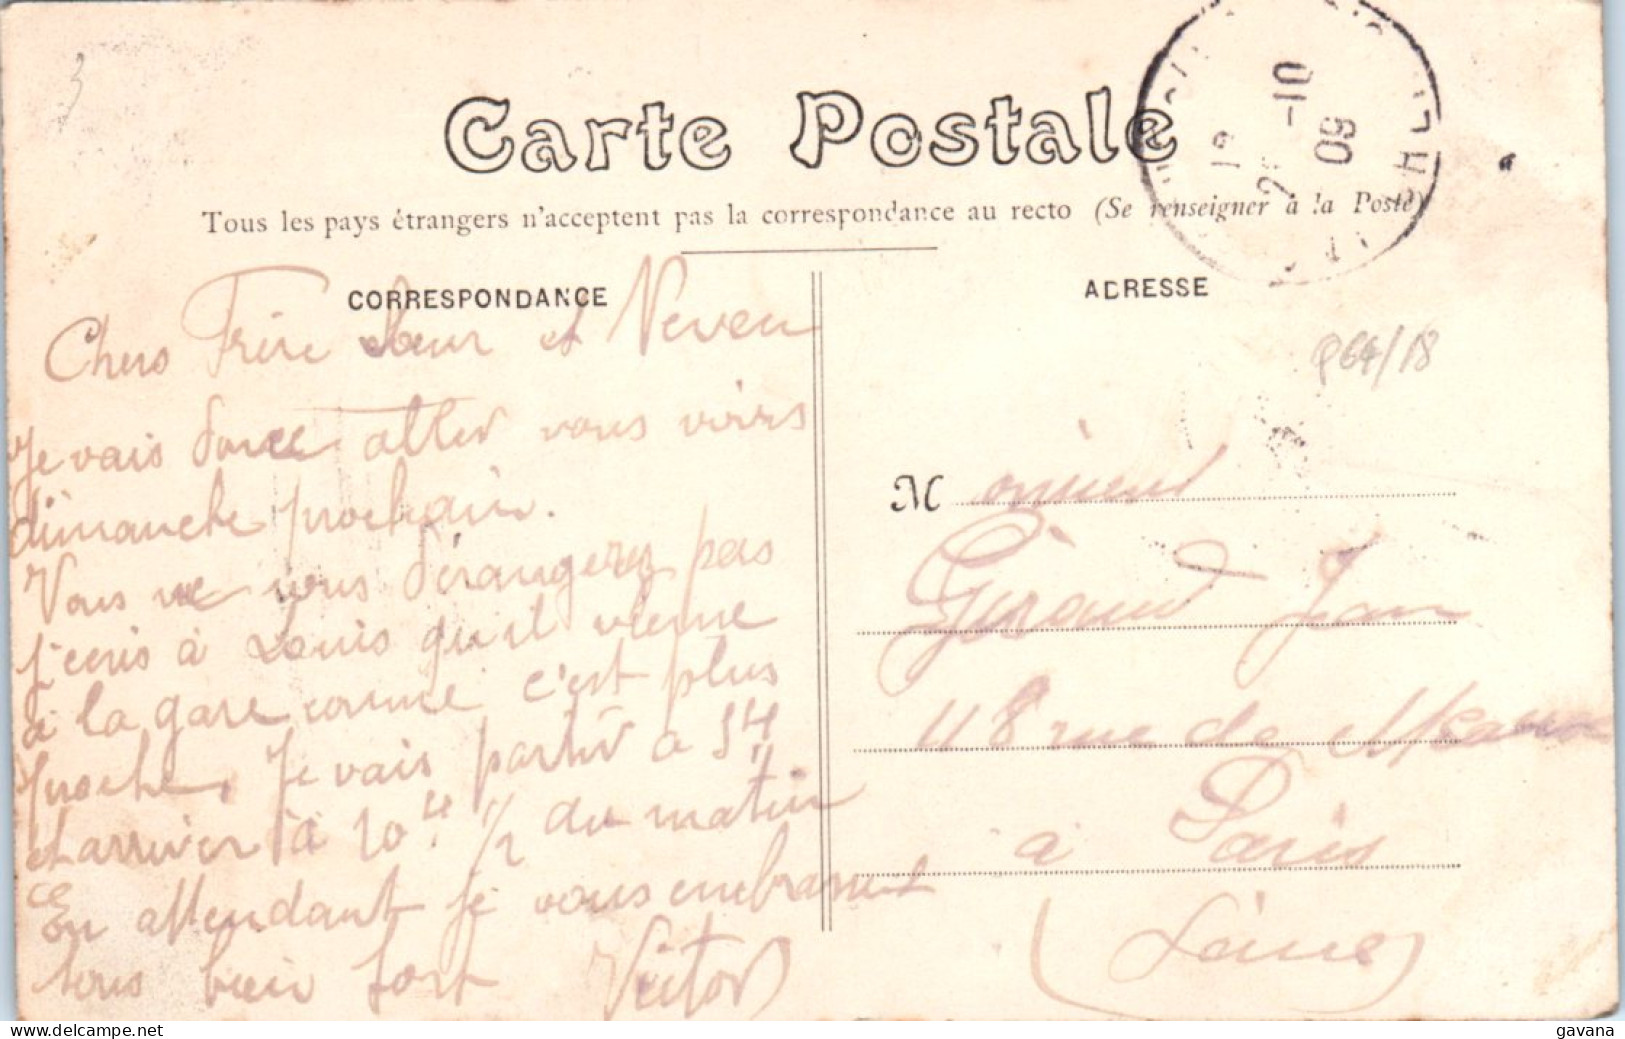 3
Carte Postale
Tous les pays étrangers n'acceptent pas la correspondance au recto (Se renseigner à la Poste)
CORRESPONDANCE
Chers Frère Sœur et Neveu
Je vais donc aller vous voirs
dimanche prochain.
Vous ne vous dérangerez pas
j'ecris à Louis qu'il vienne
à la gare comme c'est plus
proche, Je vais partir a 5H
et arriver à 10H. 1/2 du matin
En attendant je vous embrasse
tous bien fort Victor
-10
09
ADRESSE
P64/18
Monsieur
Giraud Jean
48 rue de Meaux
à Paris
(Seine)
delcampe.net
gavana